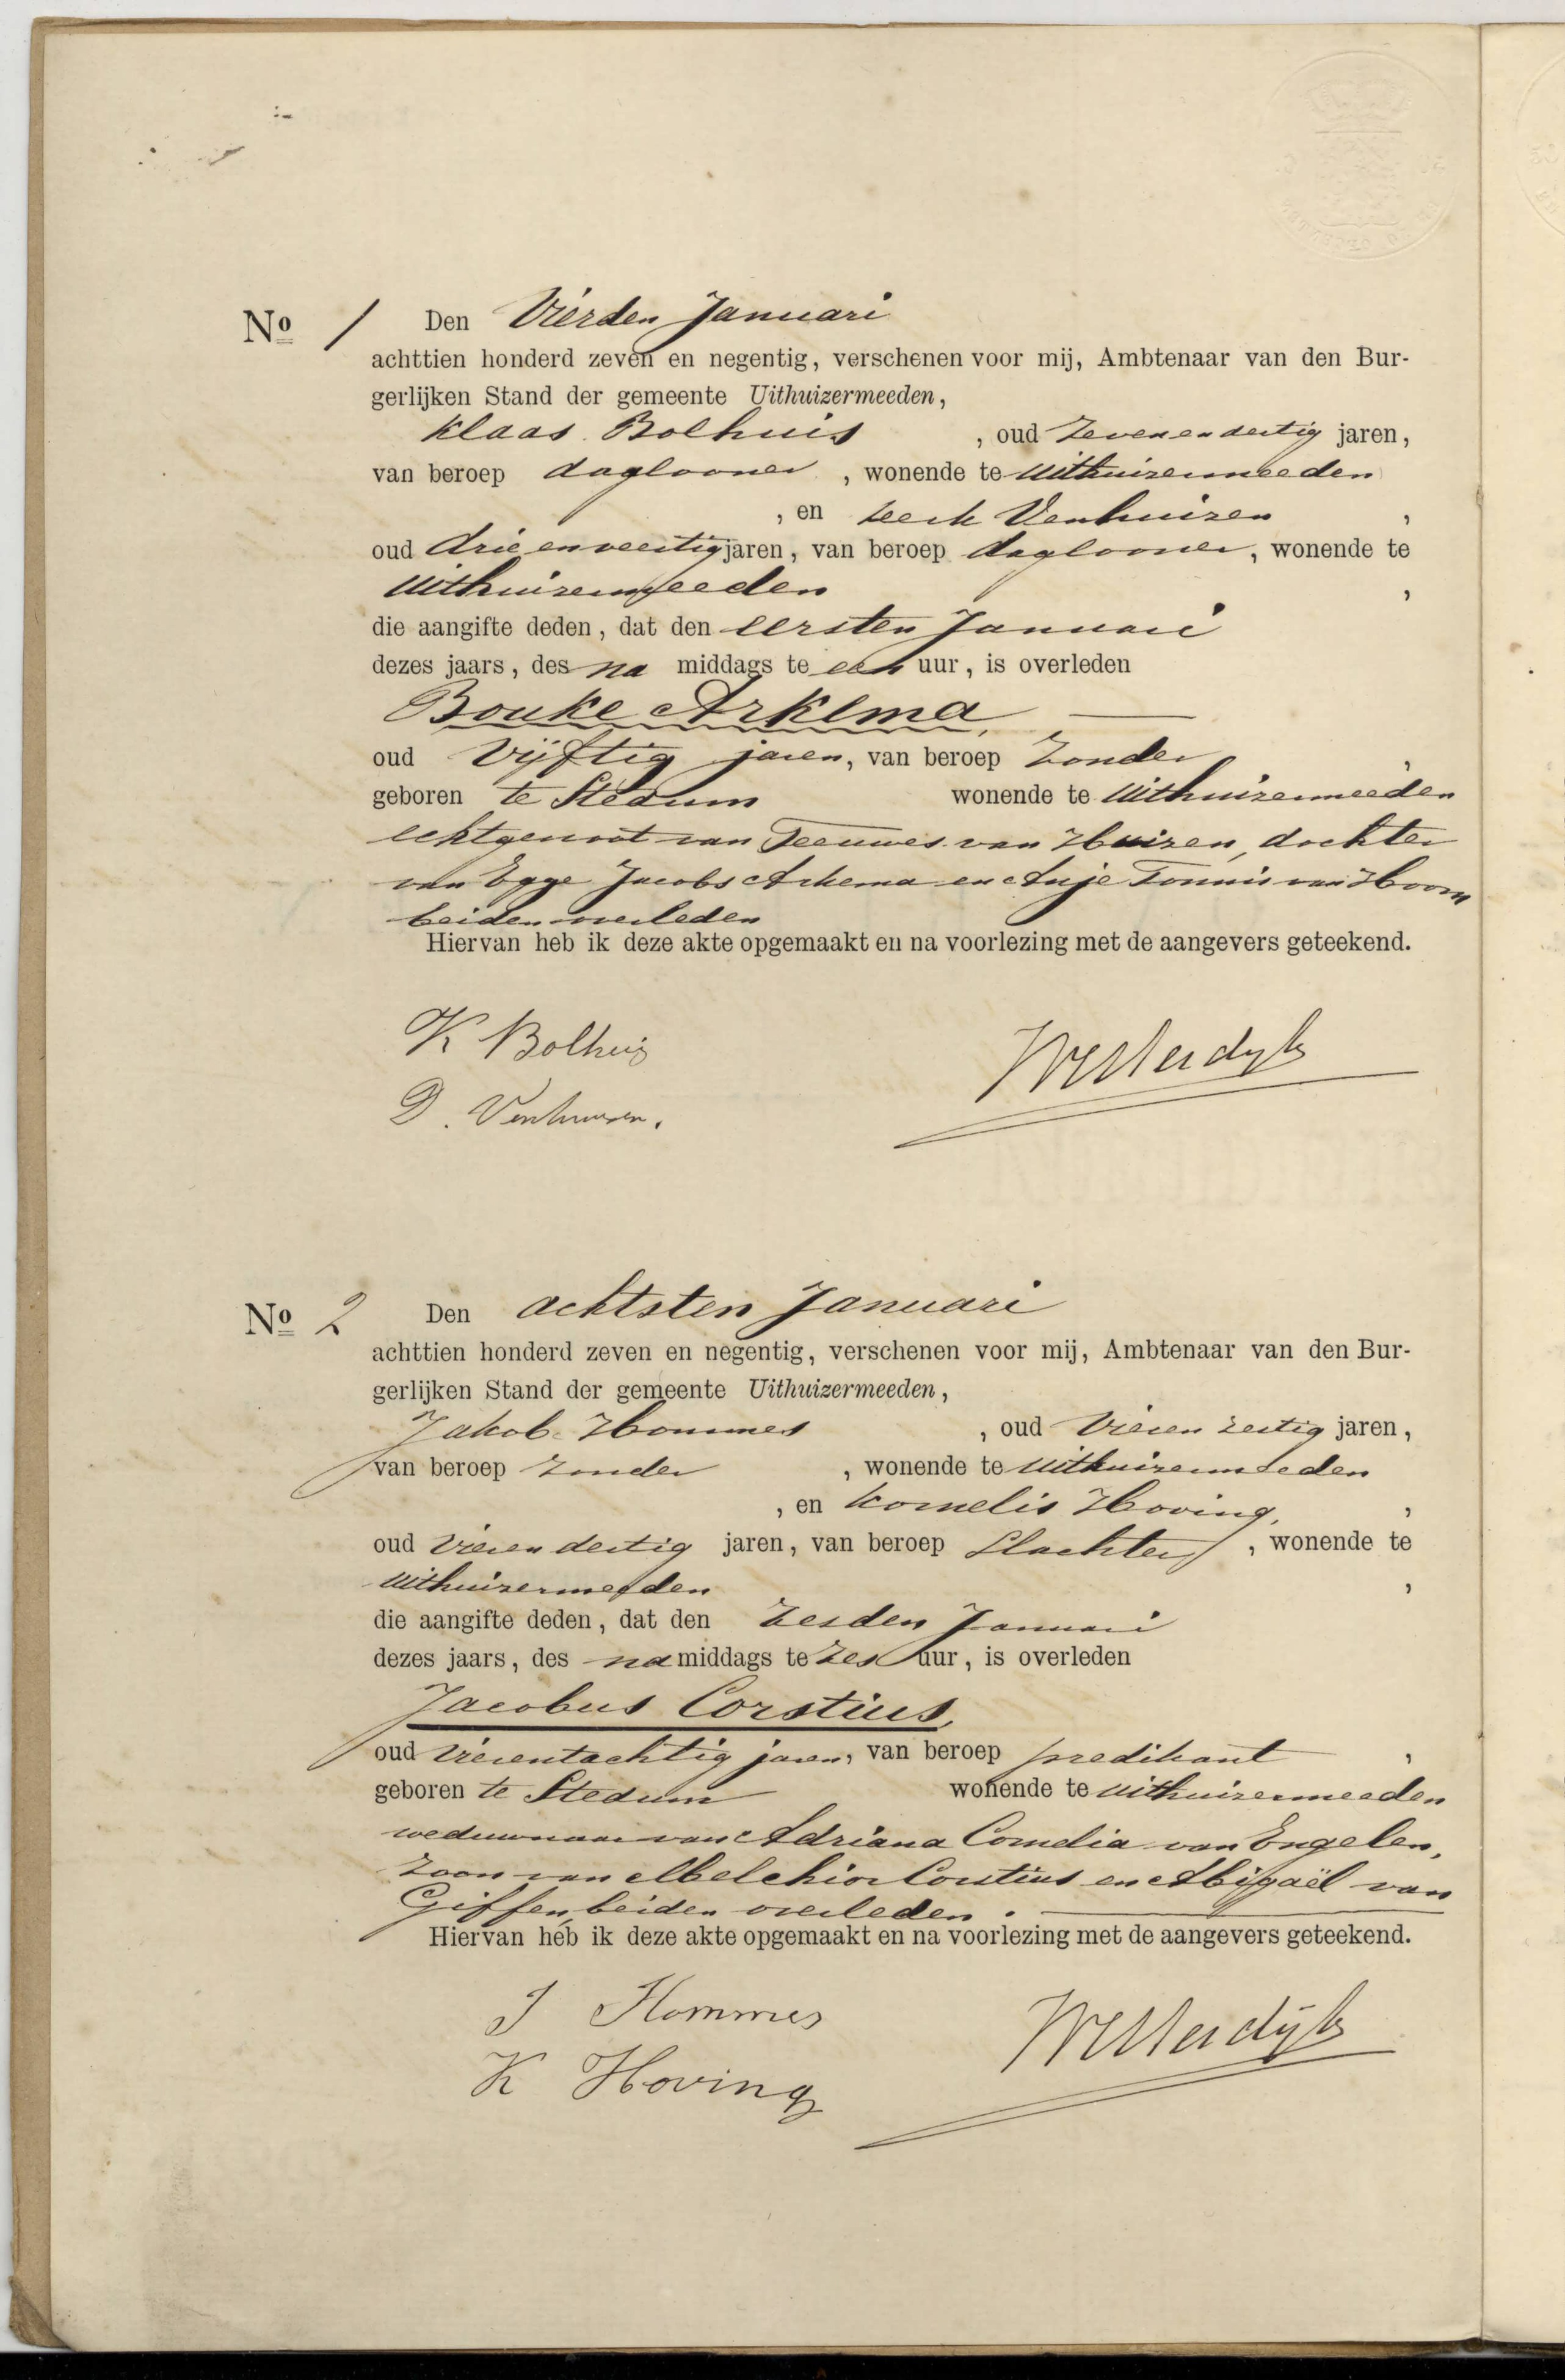 No 1 Den Vierden Januari
achttien honderd zeven en negentig, verschenen voor mij, Ambtenaar van den Bur-
gerlijken Stand der gemeente Uithuizermeeden,
Klaas Bolhuis , oud zevenendertig jaren,
van beroep daglooner , wonende te Uithuizermeeden
, en Derk Venhuizen ,
oud drieenveertig jaren, van beroep daglooner, wonende te
Uithuizermeeden ,
die aangifte deden, dat den eersten Januari
dezes jaars, des na middags te een uur, is overleden
Bouke Arkema,
oud Vijftig jaren, van beroep Zonder ,
geboren te Stedum wonende te Uithuizermeeden
echtgenoot van Teeuwes van Huizen, dochter
van Egge Jacobs Arkema en Anje Tonnis van Hoorn
beiden overleden
Hiervan heb ik deze akte opgemaakt en na voorlezing met de aangevers geteekend.
K Bolhuis
D. Venhuizen.
Westerdijk
No 2 Den achtsten Januari
achttien honderd zeven en negentig, verschenen voor mij, Ambtenaar van den Bur-
gerlijken Stand der gemeente Uithuizermeeden,
Jakob Hommes , oud Vierenzestig jaren,
van beroep zonder , wonende te Uithuizermeeden
, en Kornelis Hoving, ,
oud Vierendertig jaren, van beroep Slachter , wonende te
Uithuizermeeden ,
die aangifte deden, dat den Zesden Januari
dezes jaars, des na middags te zes uur, is overleden
Jacobus Corstius,
oud Vierentachtig jaren, van beroep predikant ,
geboren te Stedum wonende te Uithuizermeeden
weduwnaar van Adriana Cornelia van Engelen,
zoon van Melchior Corstius en Abigaël van
Giffen, beiden overleden.
Hiervan heb ik deze akte opgemaakt en na voorlezing met de aangevers geteekend.
J Hommes
K Hoving
Westerdijk